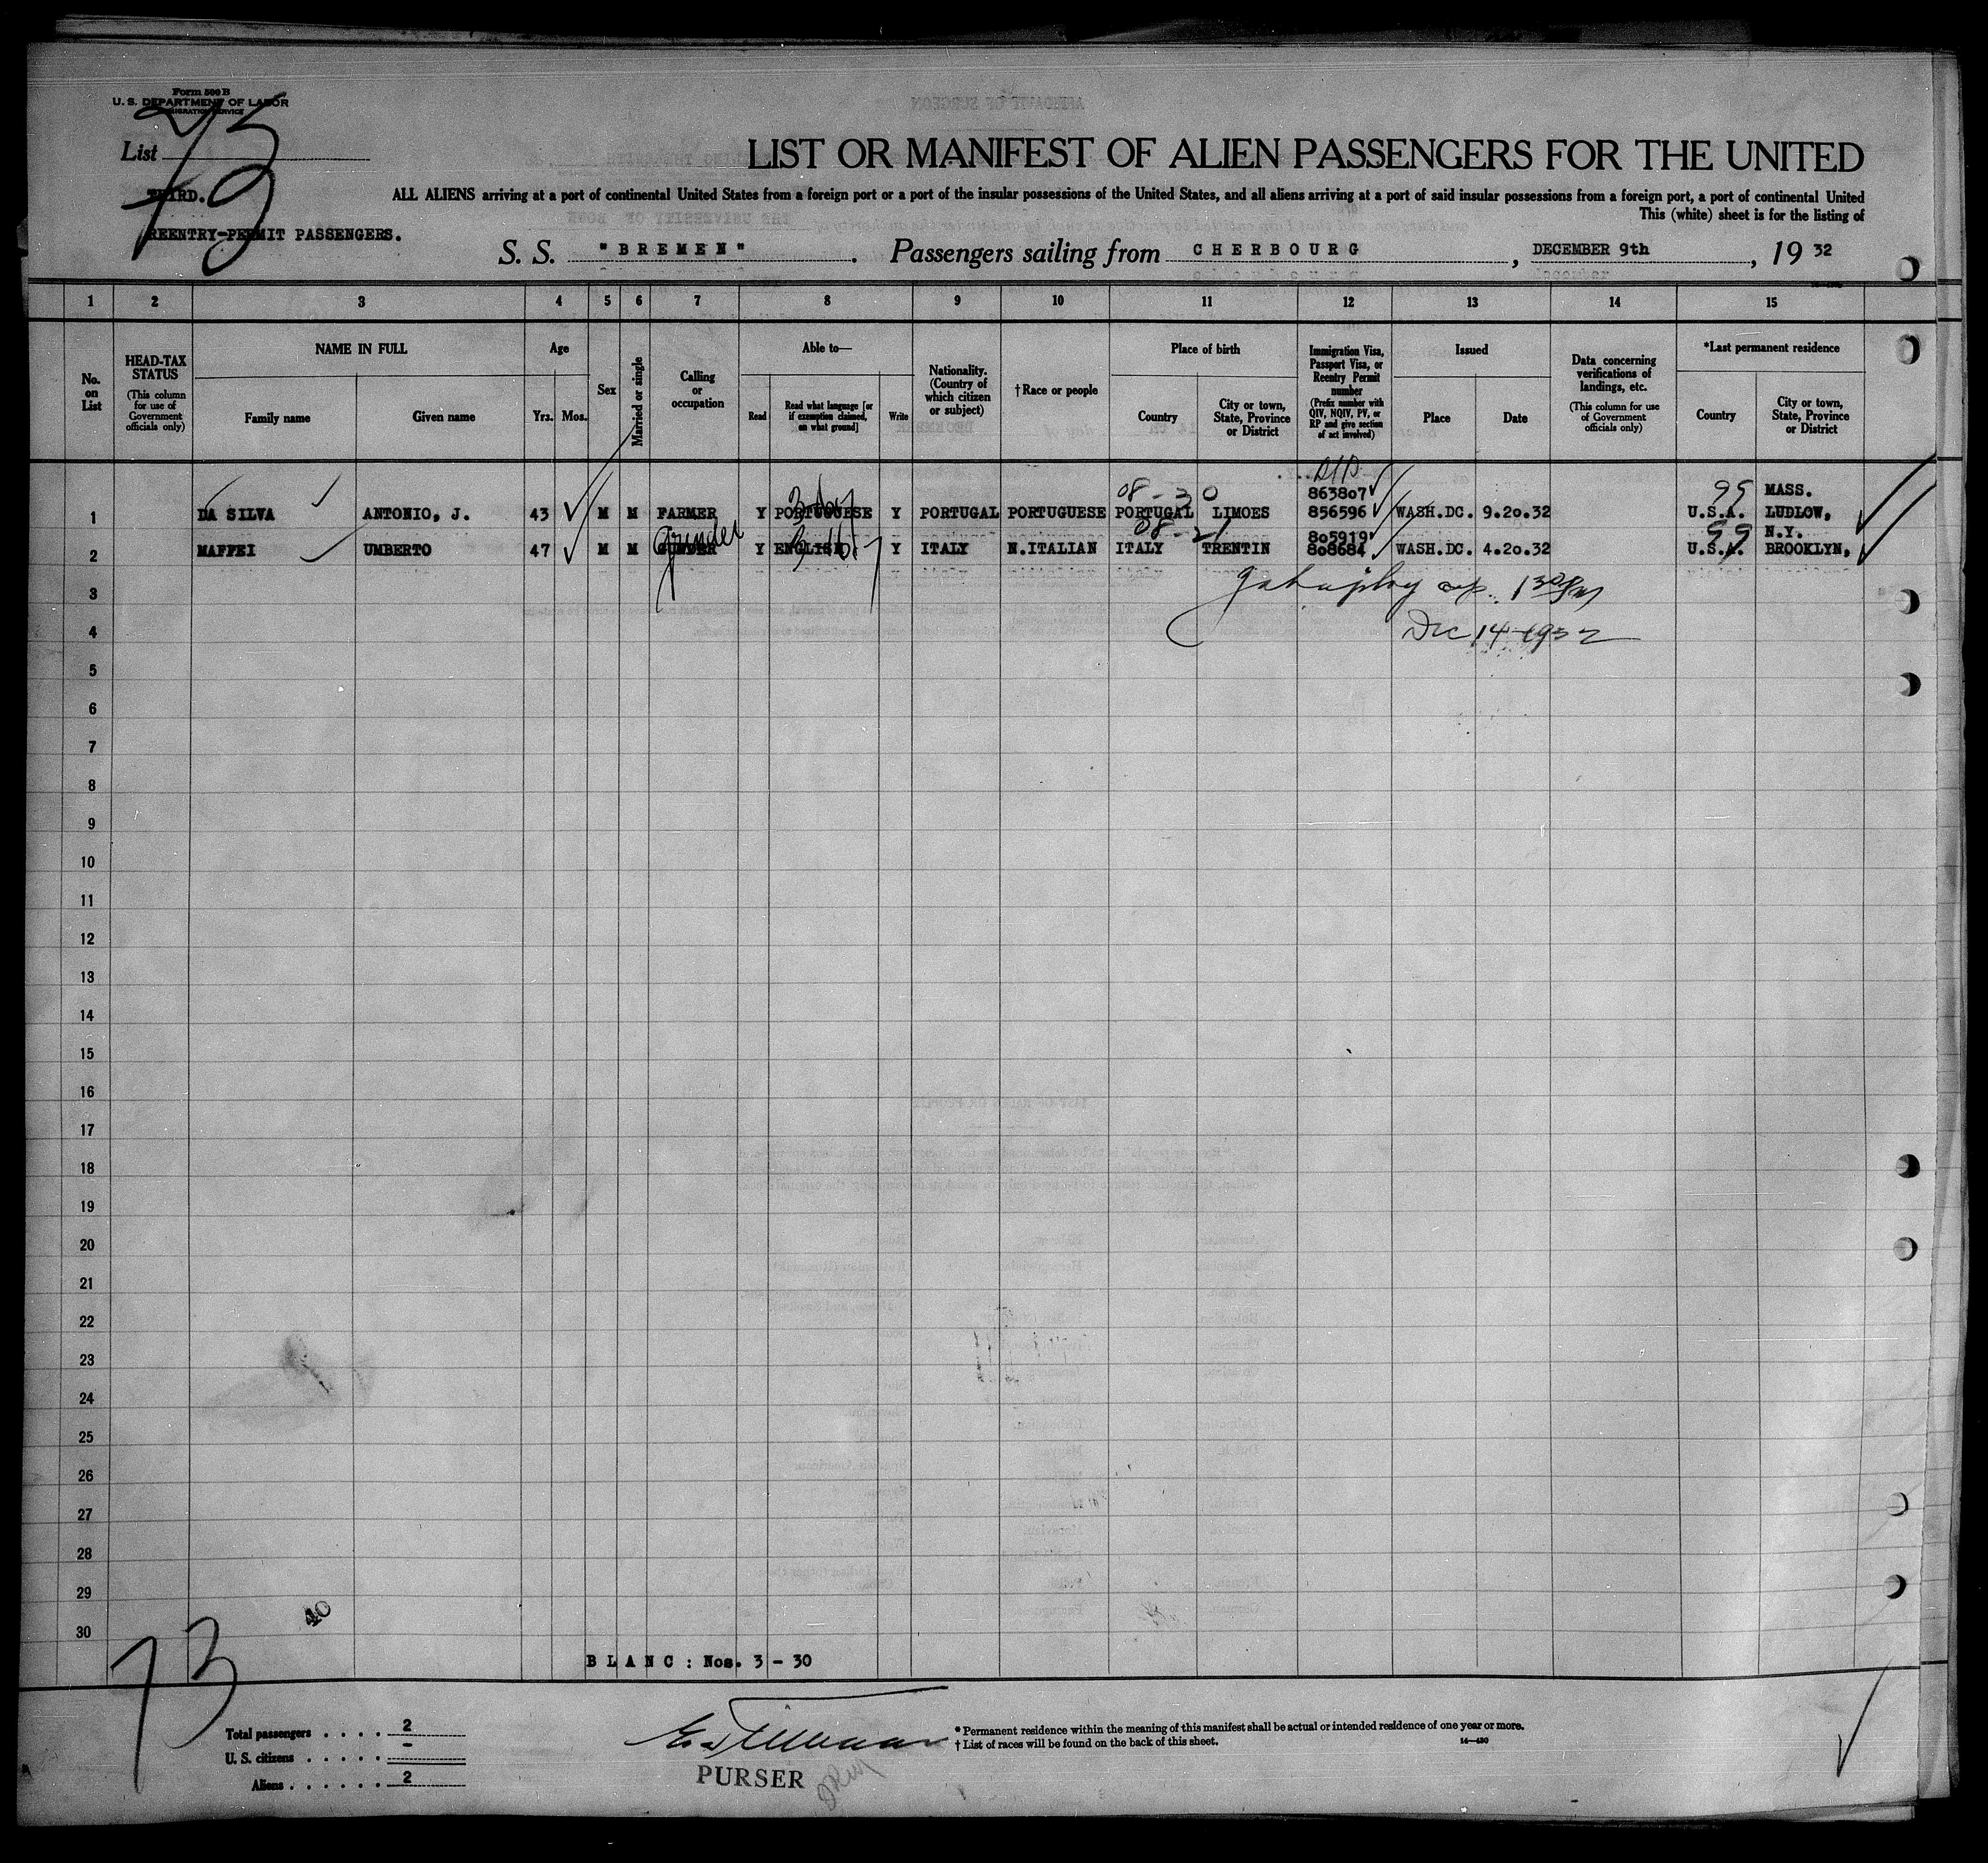 Form 500 B
U. S. DEPARTMENT OF LABOR
IMMIGRATION SERVICE
List 73
THIRD.
REENTRY-PERMIT PASSENGERS.
LIST OR MANIFEST OF ALIEN PASSENGERS FOR THE UNITED
ALL ALIENS arriving at a port of continental United States from a foreign port or a port of the insular possessions of the United States, and all aliens arriving at a port of said insular possessions from a foreign port, a port of continental United
This (white) sheet is for the listing of
S. S. "BREMEN". Passengers sailing from CHERBOURG, DECEMBER 9th, 19 32
1 2 3 4 5 6 7 8 9 10 11 12 13 14 15
No. on List
HEAD-TAX STATUS (This column for use of Government officials only)
NAME IN FULL
Family name
Given name
Age
Yrs. Mos.
Sex
Married or single
Calling or occupation
Able to—
Read
Read what language [or if exemption claimed, on what ground]
Write
Nationality. (Country of which citizen or subject)
† Race or people
Place of birth
Country
City or town, State, Province or District
Immigration Visa, Passport Visa, or Reentry Permit number (Prefix number with QIV, NQIV, PV, or RP and give section of act involved)
Issued
Place
Date
Data concerning verifications of landings, etc. (This column for use of Government officials only)
*Last permanent residence
Country
City or town, State, Province or District
08-20 863807 95 MASS.
1 DA SILVA ANTONIO, J. 43 M M FARMER Y PORTUGUESE Y PORTUGAL PORTUGUESE PORTUGAL LIMOES 856596 WASH.DC. 9.20.32 U.S.A. LUDLOW,
Grinder 08-21 805919 99 N.Y.
2 MAFFEI UMBERTO 47 M M Y ENGLISH Y ITALY N.ITALIAN ITALY TRENTIN 808684 WASH.DC. 4.20.32 U.S.A. BROOKLYN,
3
4 Dec 14-1932
5
6
7
8
9
10
11
12
13
14
15
16
17
18
19
20
21
22
23
24
25
26
27
28
29
30
40
BLANC: Nos. 3 - 30
73
Total passengers . . . . 2
U. S. citizens . . . . . -
Aliens . . . . . . 2
PURSER
* Permanent residence within the meaning of this manifest shall be actual or intended residence of one year or more.
† List of races will be found on the back of this sheet.
14—430